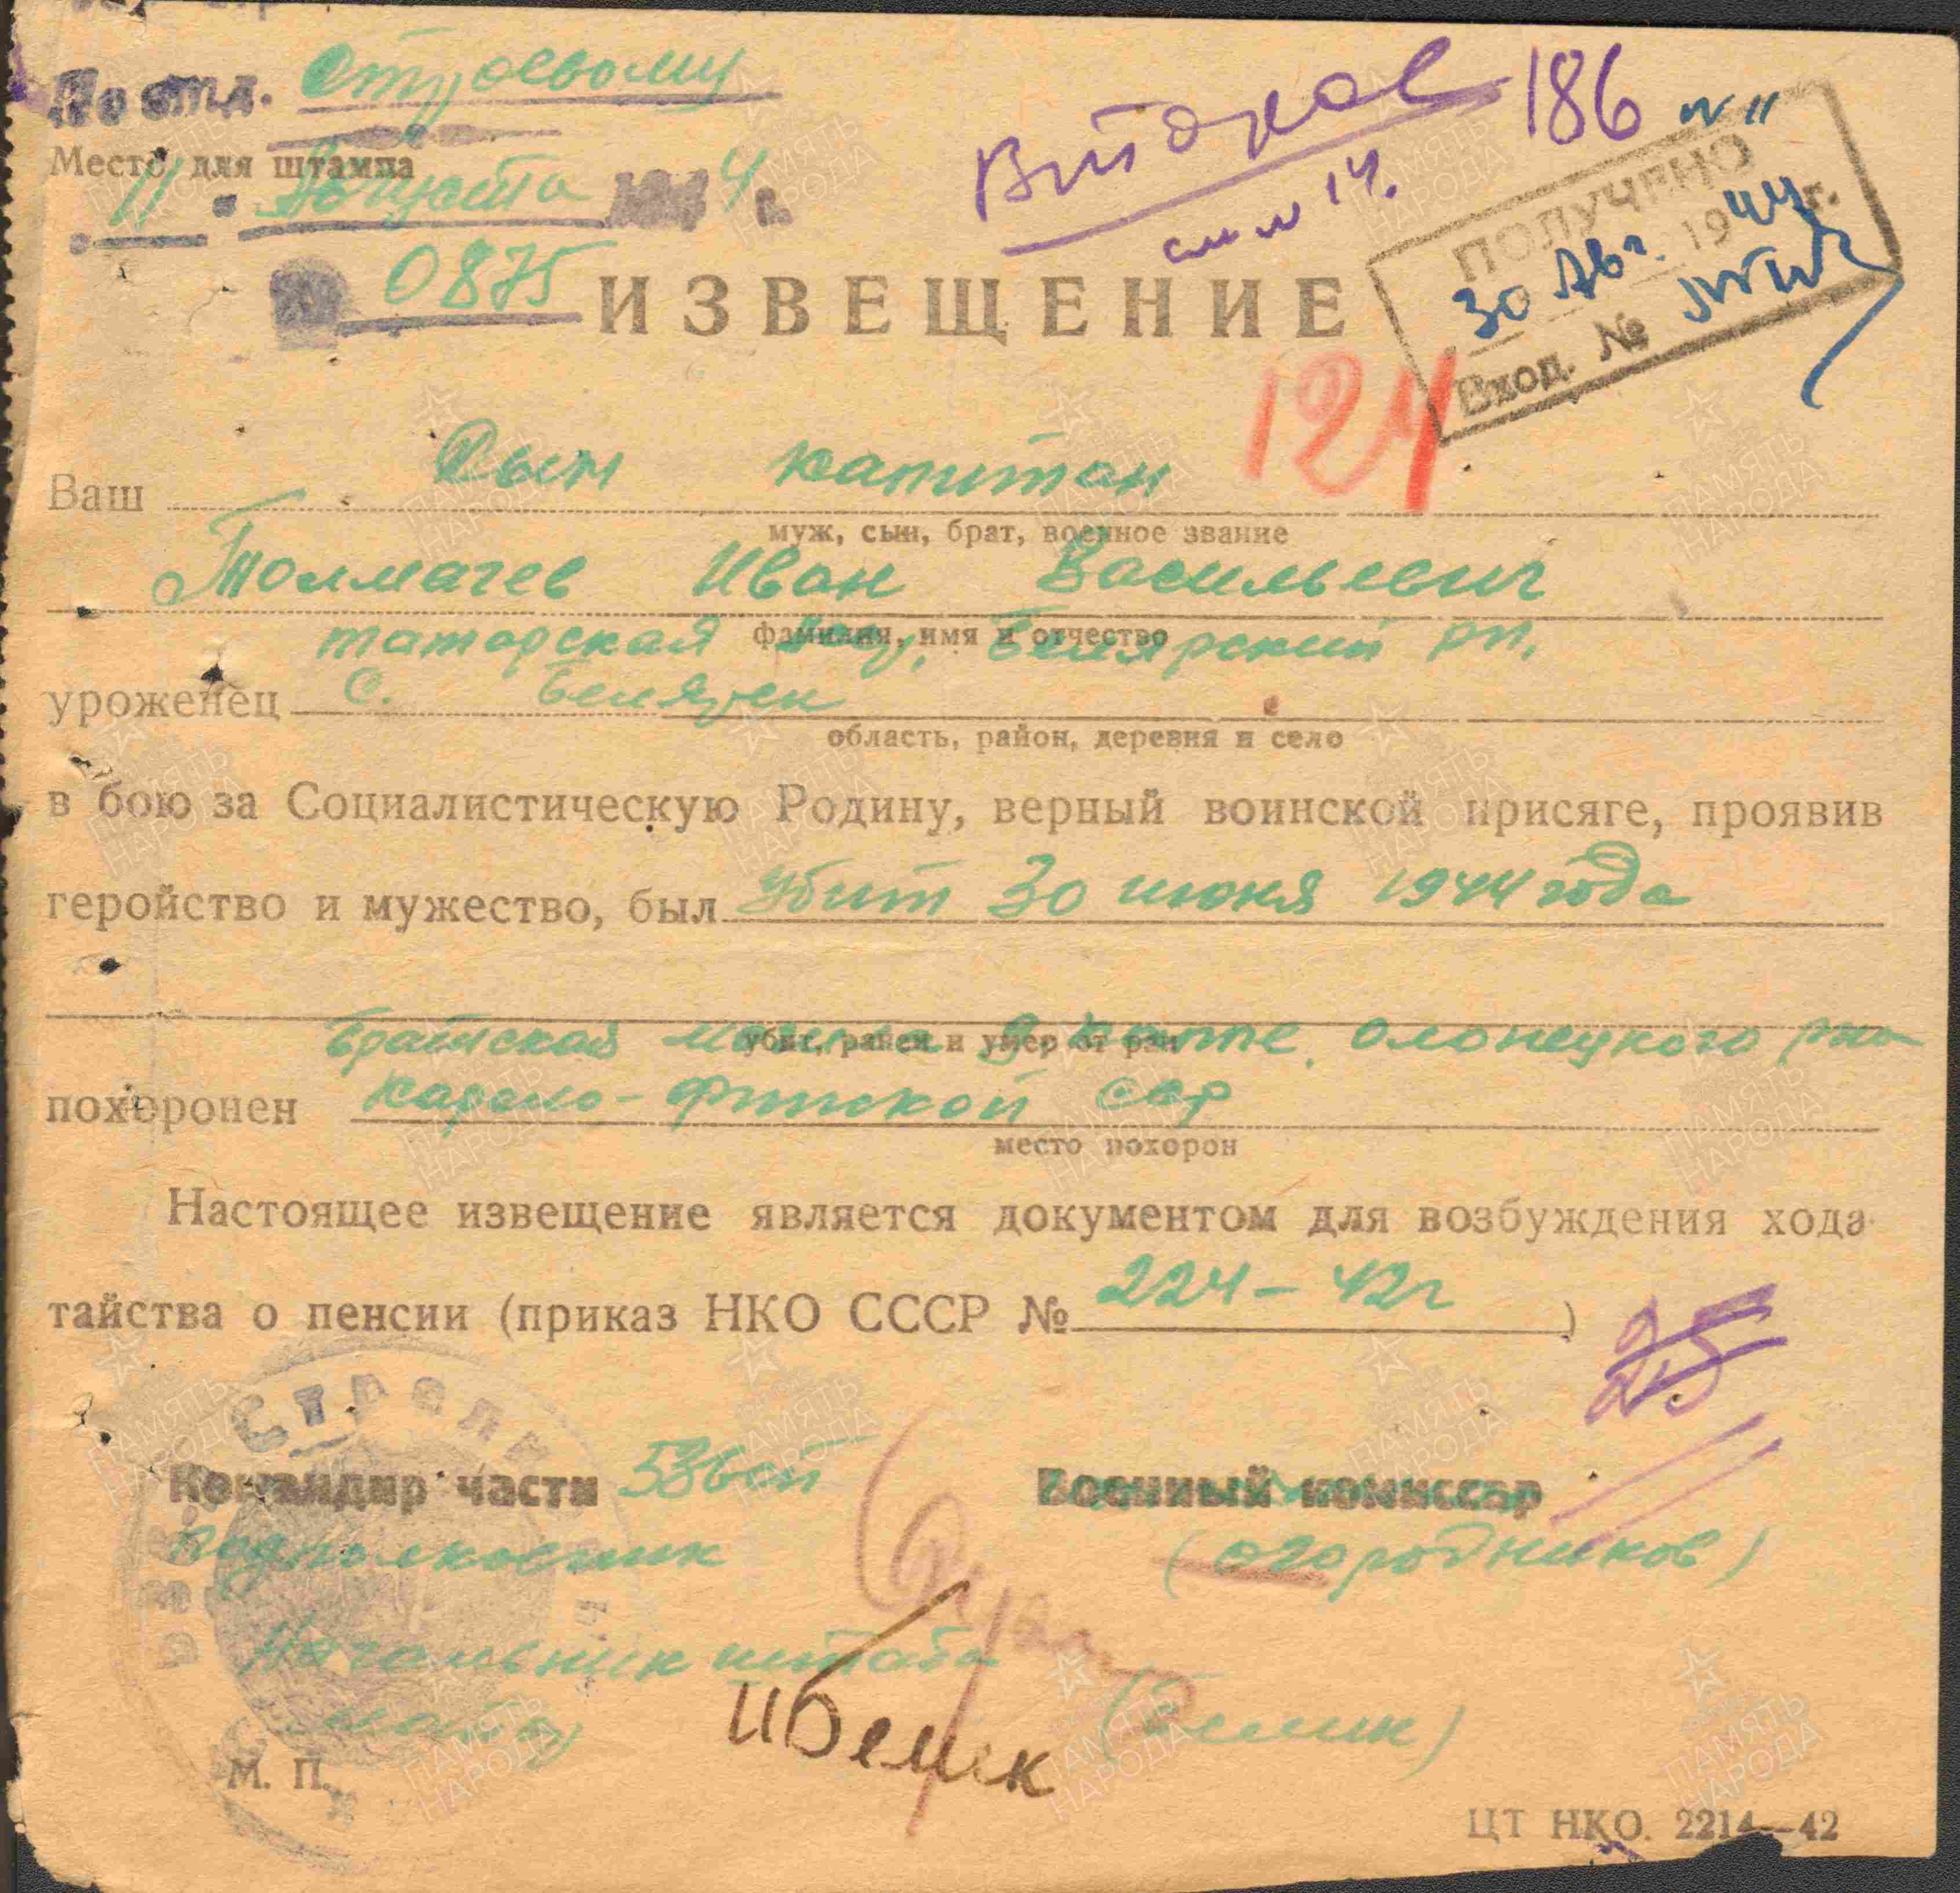 По отд. строевому
Место для штампа
11 Августа 1944 г.
0875
Вторая 186
ПОЛУЧЕНО
30 Авг. 1944 г.
Вход. №
ИЗВЕЩЕНИЕ
124
Ваш Сын капитан
муж, сын, брат, военное звание
Толмачев Иван Васильевич
фамилия, имя и отчество
татарская Билярский рн.
уроженец с. Билярск
область, район, деревня и село
в бою за Социалистическую Родину, верный воинской присяге, проявив
геройство и мужество, был убит 30 июня 1944 года
убит, ранен и умер от ран
Братская могила Олонецкого рна
похоронен Карело-Финской ССР
место похорон
Настоящее извещение является документом для возбуждения хода-
тайства о пенсии (приказ НКО СССР № 224-42г)
25
Стрелк
Командир части 536 сп Военный комиссар
подполковник (Огородников)
Начальник штаба
майор ИБелик (Белик)
М. П.
ЦТ НКО. 2214—42
ПАМЯТЬ НАРОДА